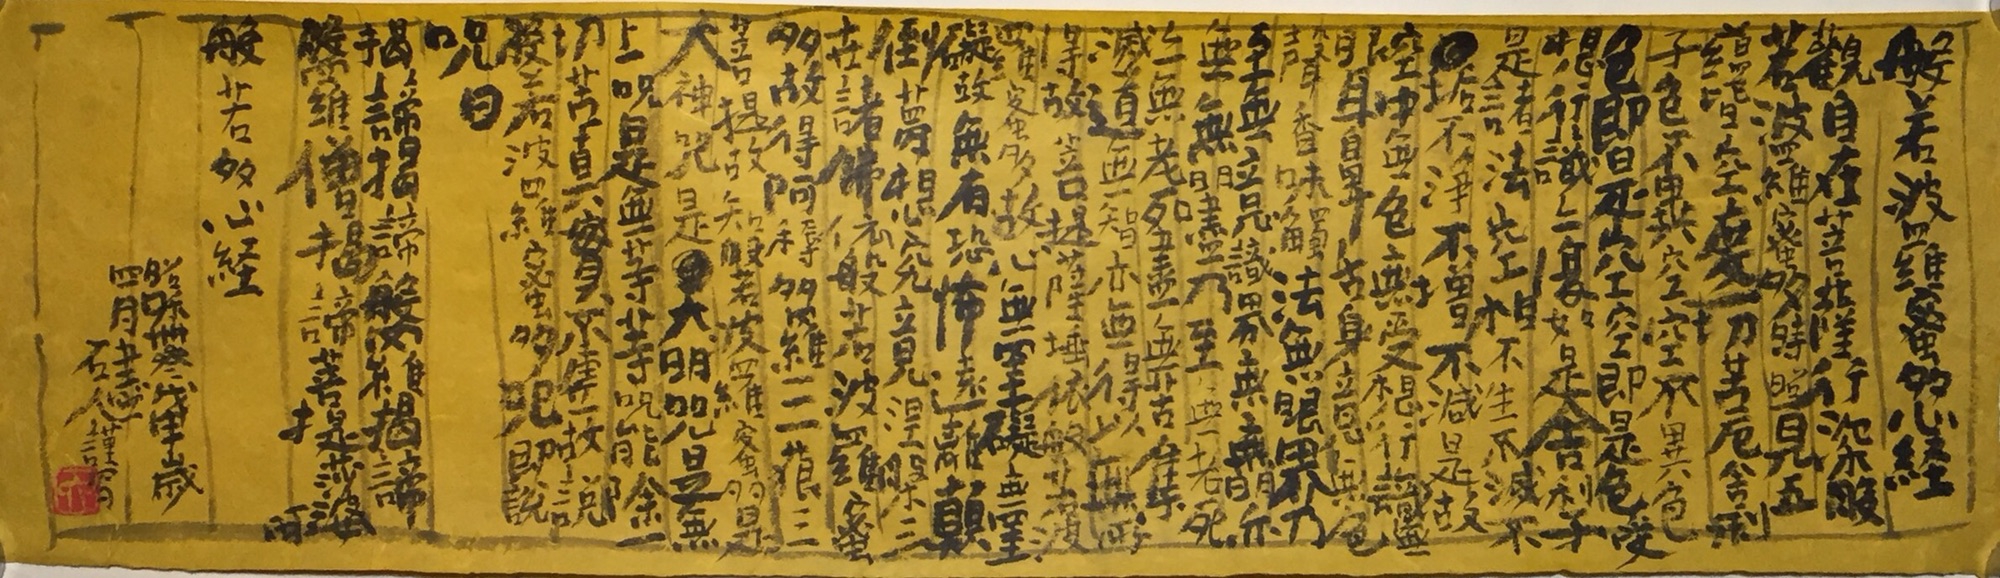 般若波羅蜜多心経
觀自在菩薩行深般
若波羅蜜多時照見五
蘊皆空度一切苦厄舎利
子色不異空空不異色
色即是空空即是色受
想行識亦復如是舎利子
是諸法空相不生不滅不
垢不淨不増不減是故
空中無色無受想行識無
眼耳鼻舌身意無色
聲香味觸法無眼界乃
至無意識界無無明亦
無無明盡乃至無老死
亦無老死盡無苦集
滅道無智亦無得以無所
得故菩提薩埵依般若波
羅蜜多故心無罣礙無罣
礙故無有恐怖遠離顛
倒夢想究竟涅槃三
世諸佛依般若波羅蜜
多故得阿耨多羅三藐三
菩提故知般若波羅蜜多是
大神呪是大明呪是無
上呪是無等等呪能除一
切苦真實不虚故説
般若波羅蜜多呪即説
呪曰
揭諦揭諦般羅揭諦
般羅僧揭諦菩提莎婆訶
般若多心経
昭和卌参戊申歳
四月
石人謹寫